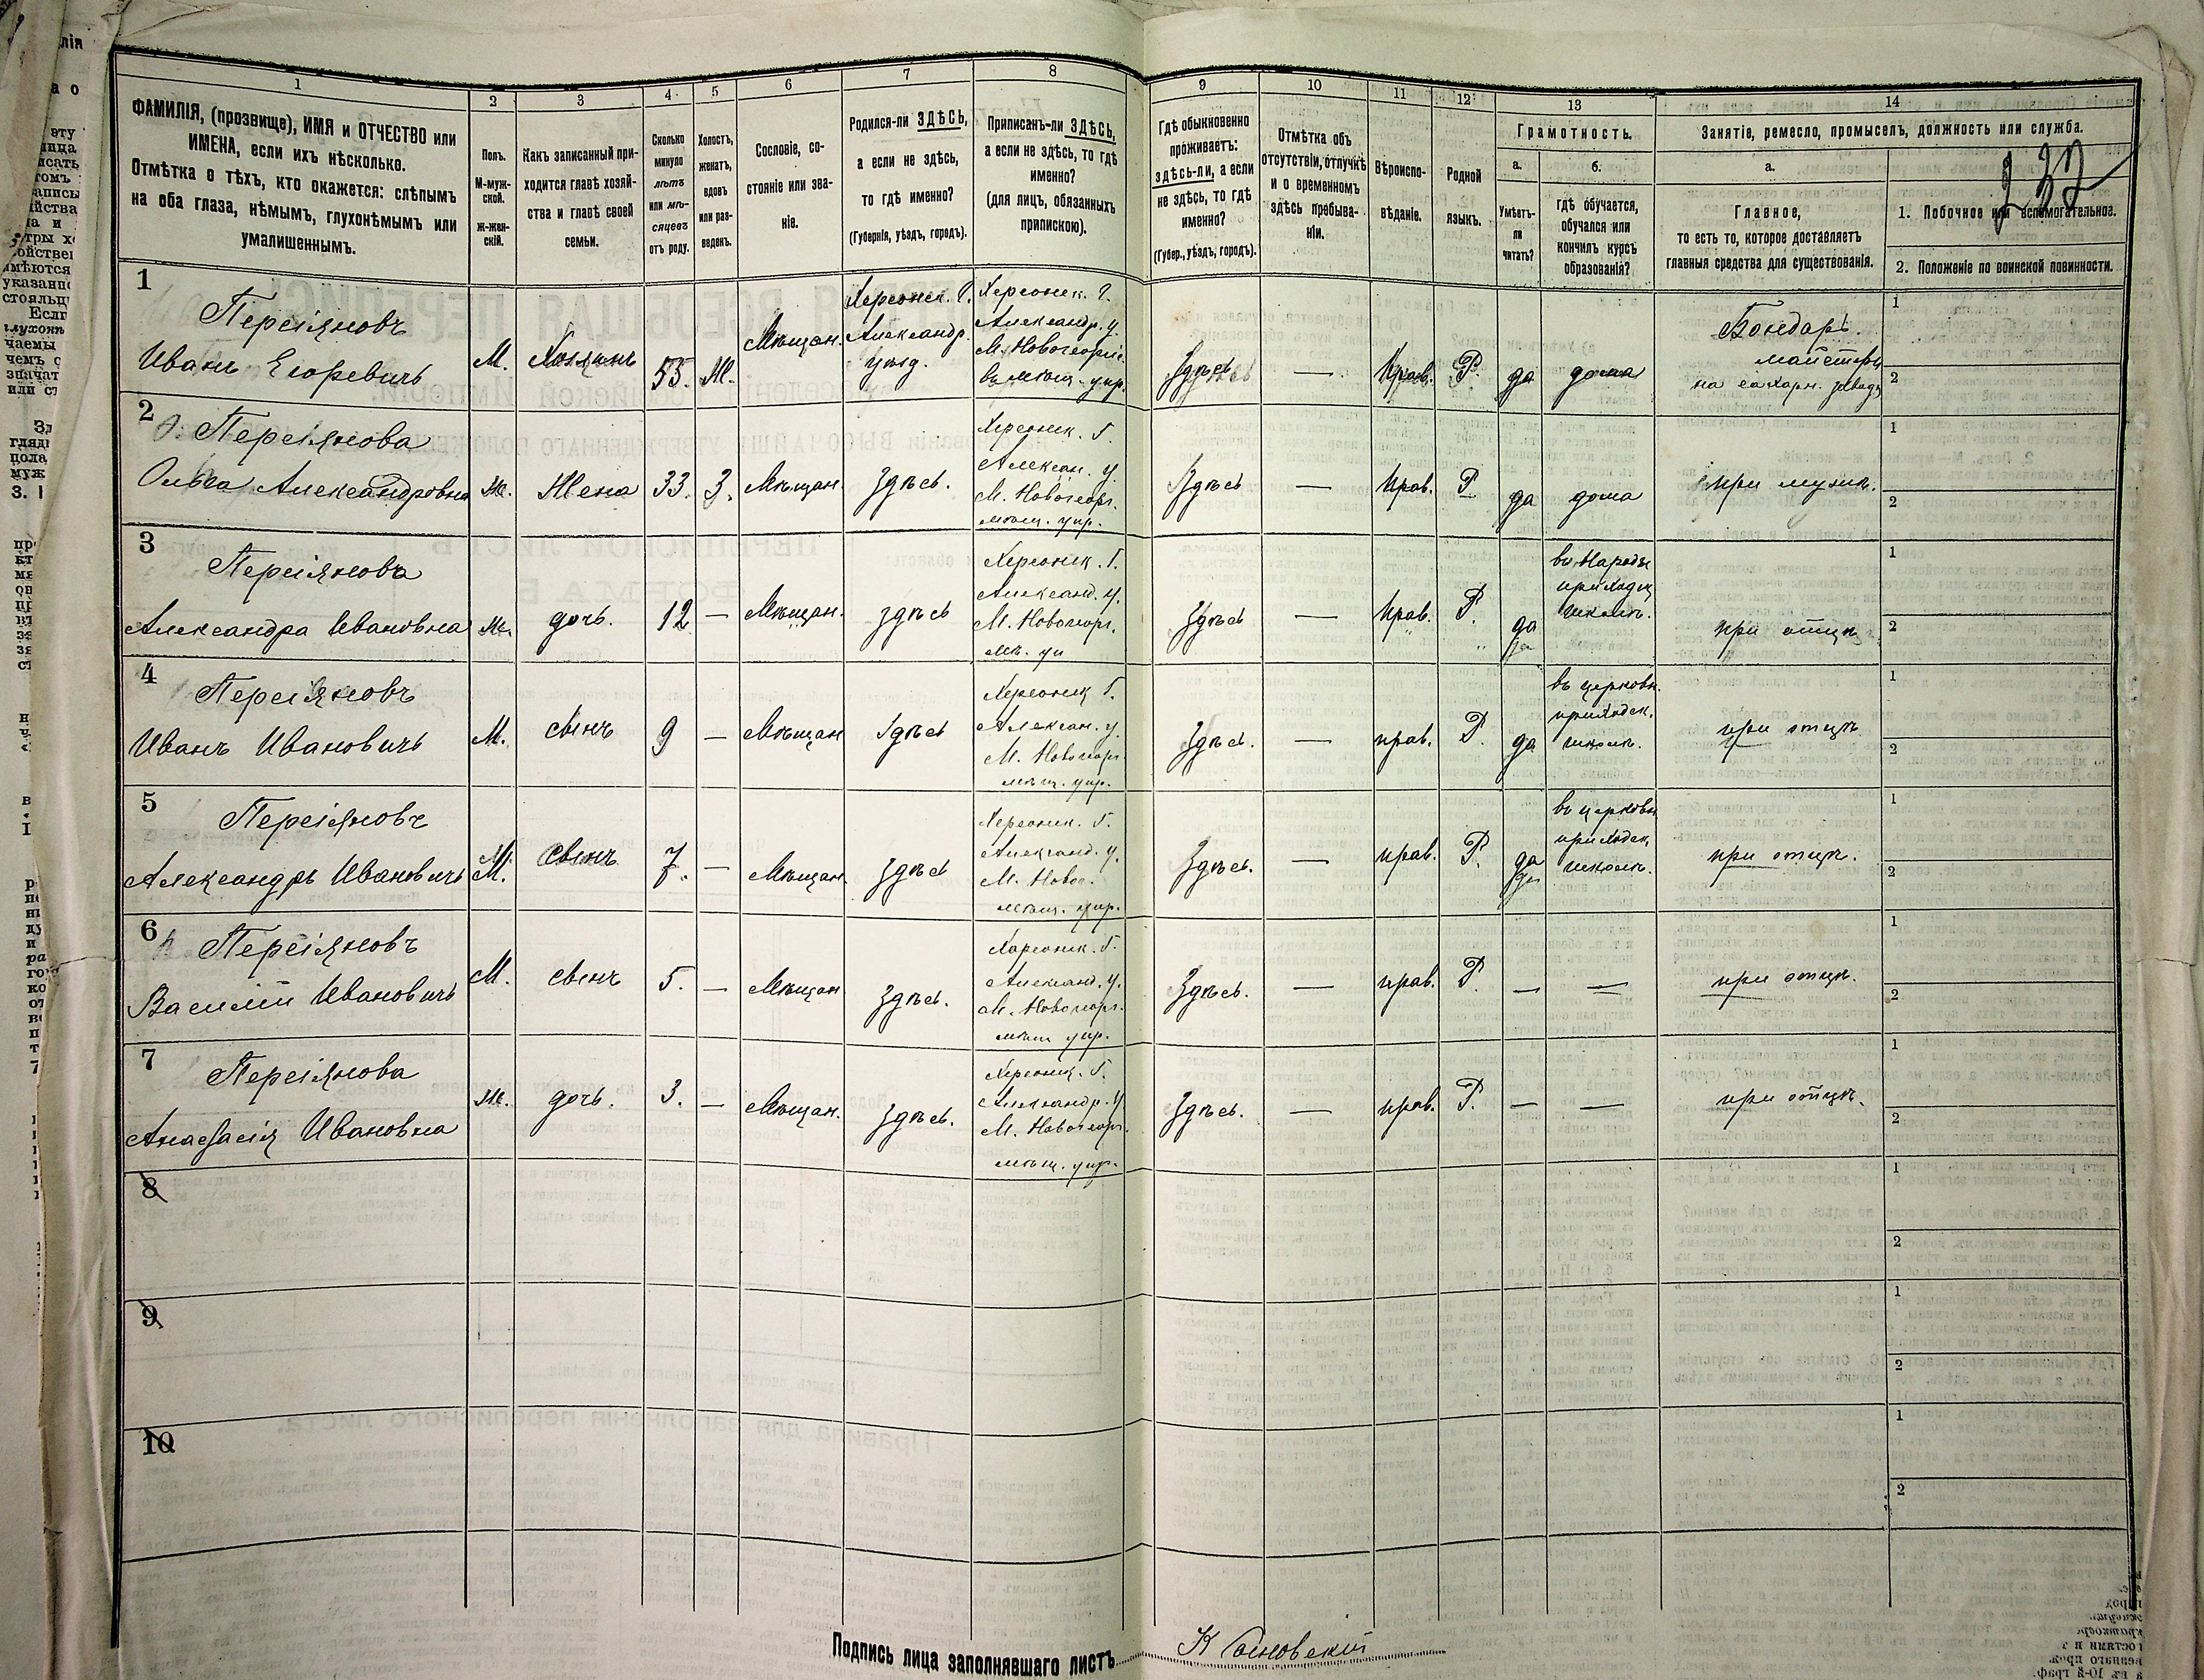 1
2
3
4
5
6
7
8
9
10
11
12
13
14
ФАМИЛІЯ, (прозвище), ИМЯ и ОТЧЕСТВО или
ИМЕНА, если ихъ нѣсколько.
Отмѣтка о тѣхъ, кто окажется: слѣпымъ
на оба глаза, нѣмымъ, глухонѣмымъ или
умалишеннымъ.
Полъ.
М-муж-
ской.
Ж-жен-
скій.
Какъ записанный при-
ходится главѣ хозяй-
ства и главѣ своей
семьи.
Сколько
минуло
лѣтъ
или мѣ-
сяцевъ
отъ роду.
Холостъ,
женатъ,
вдовъ
или раз-
веденъ.
Сословіе, со-
стояніе или зва-
ніе.
Родился-ли ЗДѢСЬ,
а если не здѣсь,
то гдѣ именно?
(Губернія, уѣздъ, городъ).
Приписанъ-ли ЗДѢСЬ,
а если не здѣсь, то гдѣ
именно?
(для лицъ, обязанныхъ
припискою).
Гдѣ обыкновенно
проживаетъ:
здѣсь-ли, а если
не здѣсь, то гдѣ
именно?
(Губер., уѣздъ, городъ).
Отмѣтка объ
отсутствіи, отлучкѣ
и о временномъ
здѣсь пребыва-
ніи.
Вѣроиспо-
вѣданіе.
Родной
языкъ.
Грамотность.
а.
Умѣетъ-
ли
читать?
б.
гдѣ обучается,
обучался или
кончилъ курсъ
образованія?
Занятіе, ремесло, промыселъ, должность или служба.
а.
Главное,
то есть то, которое доставляетъ
главныя средства для существованія.
237
1. Побочное или вспомогательное.
2. Положеніе по воинской повинности.
1
Персіяновъ
Иванъ Егоревичъ
М.
Хозяинъ
55.
Ж.
Мѣщан.
Херсонск. Г.
Александр.
уѣзд.
Херсонск. Г.
Александр. у.
М. Новогеоргіе.
мѣщ. упр.
Здѣсь
—
Прав.
Р.
да
дома
Бондарь.
на сахарн. завод.
1
2
2
Персіянова
Ольга Александровна
Ж.
Жена
33.
З.
Мѣщан.
Здѣсь.
Херсонск. Г.
Алексан. у.
М. Новогеорг.
мѣщ. упр.
Здѣсь
—
Прав.
Р
да
дома
при мужѣ.
1
2
3
Персіянова
Александра Ивановна
Ж.
дочь.
12
—
Мѣщан.
здѣсь
Херсонск. Г.
Александ. у.
М. Новогеорг.
мѣ. уп
Здѣсь
—
Прав.
Р.
да
школѣ.
при отцѣ
1
2
4
Персіяновъ
Иванъ Ивановичъ
М.
сынъ
9
—
Мѣщан
Здѣсь
Херсонск Г.
Алексан. у.
М. Новогеорг.
мѣщ. упр.
Здѣсь.
—
прав.
Р.
да
въ церковн.
приходск.
школѣ.
при отцѣ
1
2
5
Персіяновъ
Александръ Ивановичъ
М.
сынъ
7.
—
Мѣщан.
Здѣсь
Херсонск. Г.
Александ. у.
М. Новог.
мѣщ. упр.
Здѣсь.
—
прав.
Р.
да
въ церковн
приходск.
школѣ.
при отцѣ.
1
2
6
Персіяновъ
Василій Ивановичъ
М.
сынъ
5.
—
Мѣщан
Здѣсь.
Херсонск. Г.
Александ. у.
М. Новогеорг.
мѣщ упр.
Здѣсь.
—
прав.
Р.
—
—
при отцѣ.
1
2
7
Персіянова
Анастасія Ивановна
Ж.
дочь.
3.
—
Мѣщан.
Здѣсь.
Херсонск. Г.
Александр. у
М. Новогеорг.
мѣщ. упр.
Здѣсь.
—
прав.
Р.
—
—
при отцѣ.
1
2
8
1
2
9
1
2
10
1
2
Подпись лица заполнявшаго листъ